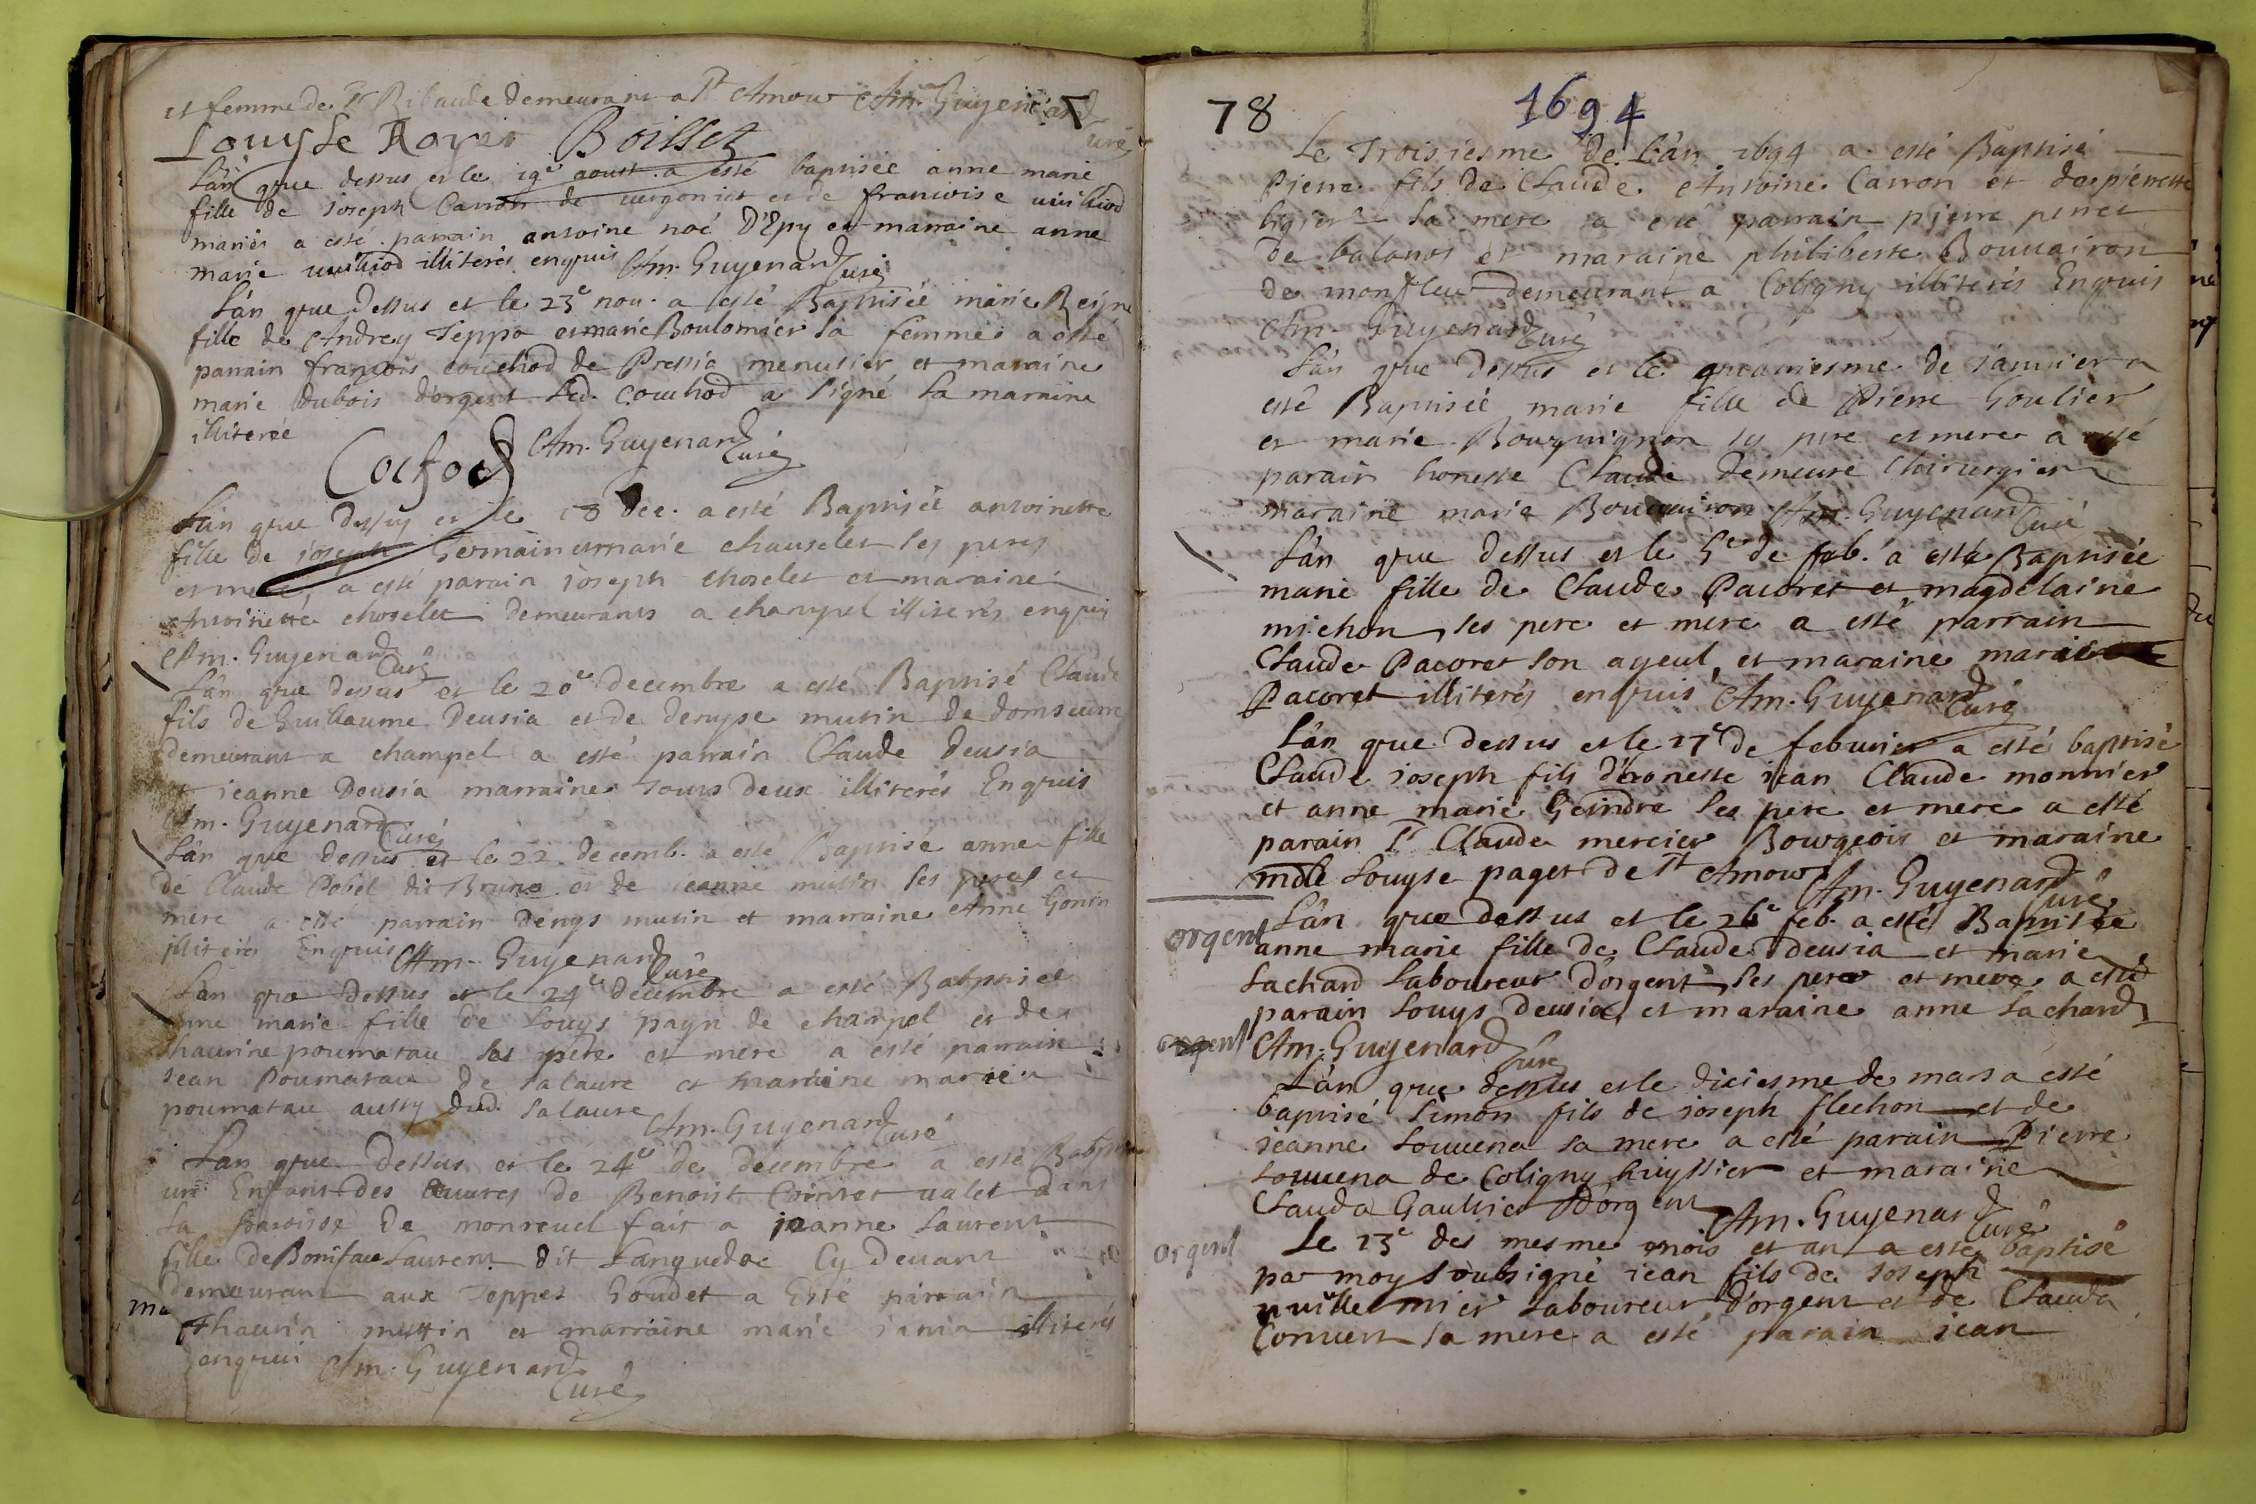 et femme de Sr Ribaude demeurant a St Amour Am. Guyenard
curé
Louyse Royer Boisset
L'an que dessus et le 19e aoust a esté baptisée anne marie
fille de joseph Carron de vergoniat et de francoise
mariés a esté parrain antoine noé D'Epy et marraine anne
marie illiterés enquis Am. Guyenard Curé
L'an que dessus et le 23e nou. a esté Baptisée marie Reyne
fille de Andrey Teppo et marie Boulomier sa femme a esté
parrain françois couchod de Pressia menusier et maraine
marie Dubois d'orgent led. Couchod a signé la maraine
illiterée
Cochod Am. Guyenard Curé
L'an que dessus et le 18 Dec. a esté Baptisée antoinette
fille de joseph Germain et marie chauselet ses peres
et mere, a esté parain joseph choselet et maraine
Antoinette choselet demeurants a champel illiterés enquis
Am. Guyenard Curé
L'an que dessus et le 20e decembre a esté Baptisé Claude
fils de Guillaume Deusia et de denyse mutin de domseure
demeurant a champel a esté parrain Claude Deusia
et jeanne Deusia marraine tous deux illiterés Enquis
Am. Guyenard Curé
L'an que dessus et le 22 decemb. a esté Baptisé anne fille
de Claude Pobel dit Bruno et de jeanne mutin ses peres et
mere a esté parrain denys mutin et marraine Anne Gonin
illiterés Enquis Am. Guyenard Curé
L'an que dessus et le 24e decembre a esté Babptise
anne marie fille de Louys payn de champel et de
thaurine poumatau ses pere et mere a esté parrain
jean Poumatau de salaure et maraine marie
poumatau aussy dud. salaure Am. Guyenard Curé
L'an que dessus et le 24e de decembre a esté Babptisé
un Enfant des œuures de Benoist valet dans
la paroisse de monreuel fait a jeanne Laurent
fille de Boniface Laurent dit Languedoc Cy deuant
demeurant aux Teppes Goudet a Esté parrain
ma
Thaurin muttin et marraine marie janin illiterés
enquis Am. Guyenard
Curé
78 1694
Le Troisiesme de L'an 1694 a esté Baptisé
Pierre fils de Claude Antoine Carron et de pierrette
sa mere a esté parrain pierre perret
de balanos et maraine philiberte Bouuairon
de monfleur demeurant a Coligny illiterés Enquis
Am. Guyenard Curé
L'an que dessus et le quatriesme de januier a
esté Baptisée marie fille de Pierre Goulier
et marie Bourguignon ses pere et mere a esté
parain honeste Claude Demeure Chirurgien
maraine marie Bouuairon Am. Guyenard Curé
L'an que dessus et le 5e de feb. a esté Baptisée
marie fille de Claude Pacoret et magdelaine
michon ses pere et mere a esté parrain
Claude Pacoret son ayeul et maraine marie
Pacoret illiterés enquis Am. Guyenard Curé
L'an que dessus et le 17e de feburier a esté baptisé
Claude joseph fils d'honeste jean Claude monnier
et anne marie Geindre ses pere et mere a esté
parain Sr Claude mercier Bourgeois et maraine
mdle Louyse paget de St Amour Am. Guyenard Curé
orgent
L'an que dessus et le 26e feb. a esté Baptisée
anne marie fille de Claude Deusia et marie
Lachard Laboureur d'orgent ses pere et mere a esté
parain Louys Deusia et maraine anne Lachard
orgent
Am. Guyenard Curé
L'an que dessus et le diciesme de mars a esté
baptisé Simon fils de joseph flechon et de
jeanne Louuena sa mere a esté parain Pierre
Louuena de Coligny huyssier et maraine
Clauda Gaultier d'orgent Am. Guyenard Curé
orgent
Le 13e des mesme mois et an a esté baptisé
par moy soubsigné jean fils de joseph
vuillermier Laboureur d'orgent et de Clauda
Conuert sa mere a esté parain jean